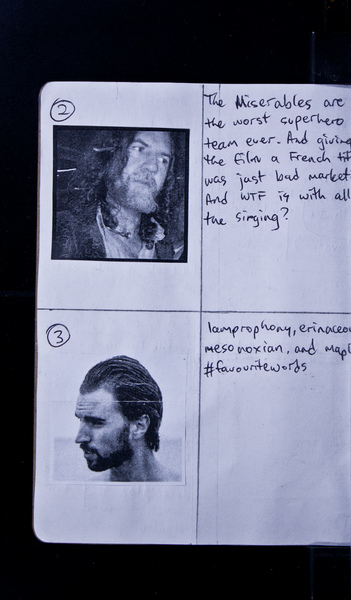 2
The Miserables are
the worst superhero
team ever. And giving
the film a French tit
was just bad market
And WTF is with all
the singing?
3
lamprophony, erinaceo
mesonoxian, and mapl
#favouritewords